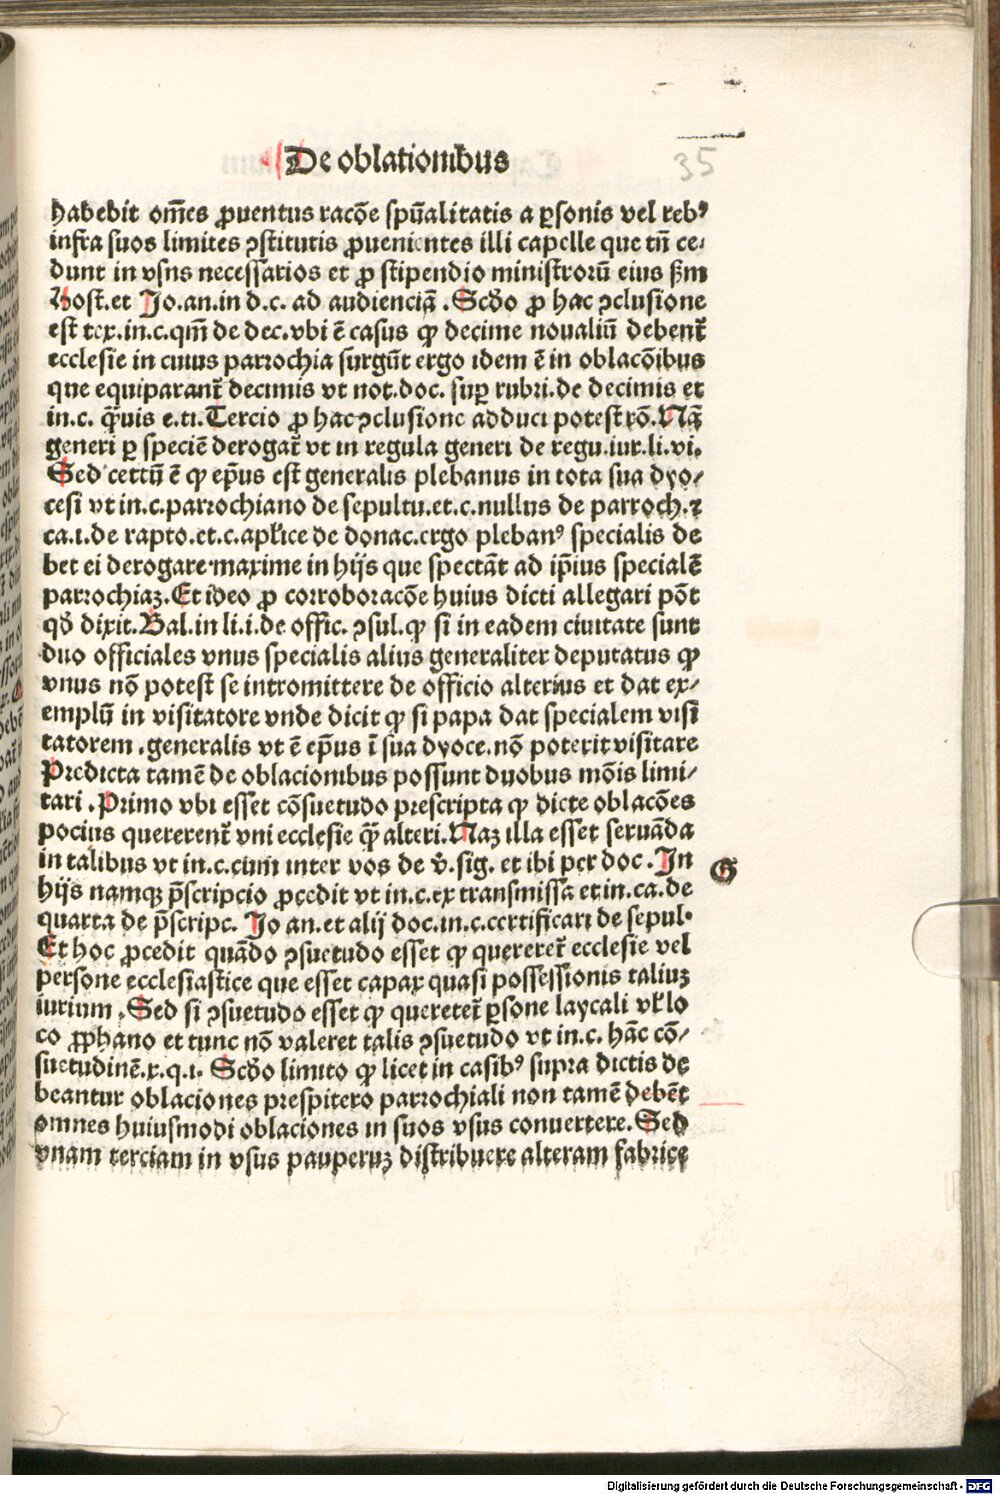 De oblationibus
35
habebit om̃es ꝓuentus racõe spũalitatis a ꝑsonis vel rebꝰ
infra suos limites ꝯstitutis ꝓuenientes illi capelle que tñ ce⸗
dunt in vsns necessarios et ꝓ stipendio ministrorũ eius ẜm
Host.et Jo.an.in d.c. ad audienciã .Scḋo ꝓ hac ꝯclusione
est tex.in.c.qm̃ de dec.vbi ẽ casus ꝙ decime noualiũ debent᷑
ecclesie in cuius parrochia surgũt ergo idem ẽ in oblacõibus
que equiparant᷑ decimis vt not.doc. suꝑ rubri.de decimis et
in.c. q̃uis e.ti.Tercio ꝓ hac ꝯclusione adduci potest rõ.Nã
generi ꝑ speciẽ derogat᷑ vt in regula generi de regu.iur.li.vi.
Sed certũ ẽ ꝙ ep̃us est generalis plebanus in tota sua dyo⸗
cesi vt in.c.parrochiano de sepultu.et.c.nullus de parroch.⁊
ca.i.de rapto.et.c.apl̃ice de donac.ergo plebanꝰ specialis de
bet ei derogare maxime in hijs que spectãt ad ip̃ius specialẽ
parrochiaꝫ.Et ideo ꝓ corroboracõe huius dicti allegari põt
qḋ dixit.Bal.in li.i.de offic. ꝯsul.ꝙ si in eadem ciuitate sunt
duo officiales vnus specialis alius generaliter deputatus ꝙ
vnus nõ potest se intromittere de officio alterius et dat ex⸗
emplũ in visitatore vnde dicit ꝙ si papa dat specialem visi
tatorem .generalis vt ẽ ep̃us ĩ sua dyoce.nõ poterit visitare
Predicta tamẽ de oblacionibus possunt duobus mõis limi⸗
tari .Primo vbi esset cõsuetudo prescripta ꝙ dicte oblacões
pocius quererent᷑ vni ecclesie q̃ alteri.Naꝫ illa esset seruãda
in talibus vt in.c.cum inter vos de v̓.sig. et ibi per doc .In
G
hijs namqꝫ p̃scripcio ꝓcedit vt in.c.ex transmissa et in.ca.de
quarta de p̃scripc. Jo an.et alij doc.in.c.certificari de sepul.
Et hoc ꝓcedit quãdo ꝯsuetudo esset ꝙ quereret᷑ ecclesie vel
persone ecclesiastice que esset capax quasi possessionis taliuꝫ
iurium .Sed si ꝯsuetudo esset ꝙ queretet᷑ ꝑsone laycali vl̓ lo
co ꝓphano et tunc nõ valeret talis ꝯsuetudo vt in.c. hãc cõ⸗
suetudinẽ.x.q.i. Scḋo limito ꝙ licet in casibꝰ supra dictis de
beantur oblaciones prespitero parrochiali non tamẽ debẽt
omnes huiusmodi oblaciones in suos vsus conuertere.Sed
vnam terciam in vsus pauperuꝫ distribuere alteram fabrice
Digitalisierung gefördert durch die Deutsche Forschungsgemeinschaft - DFG